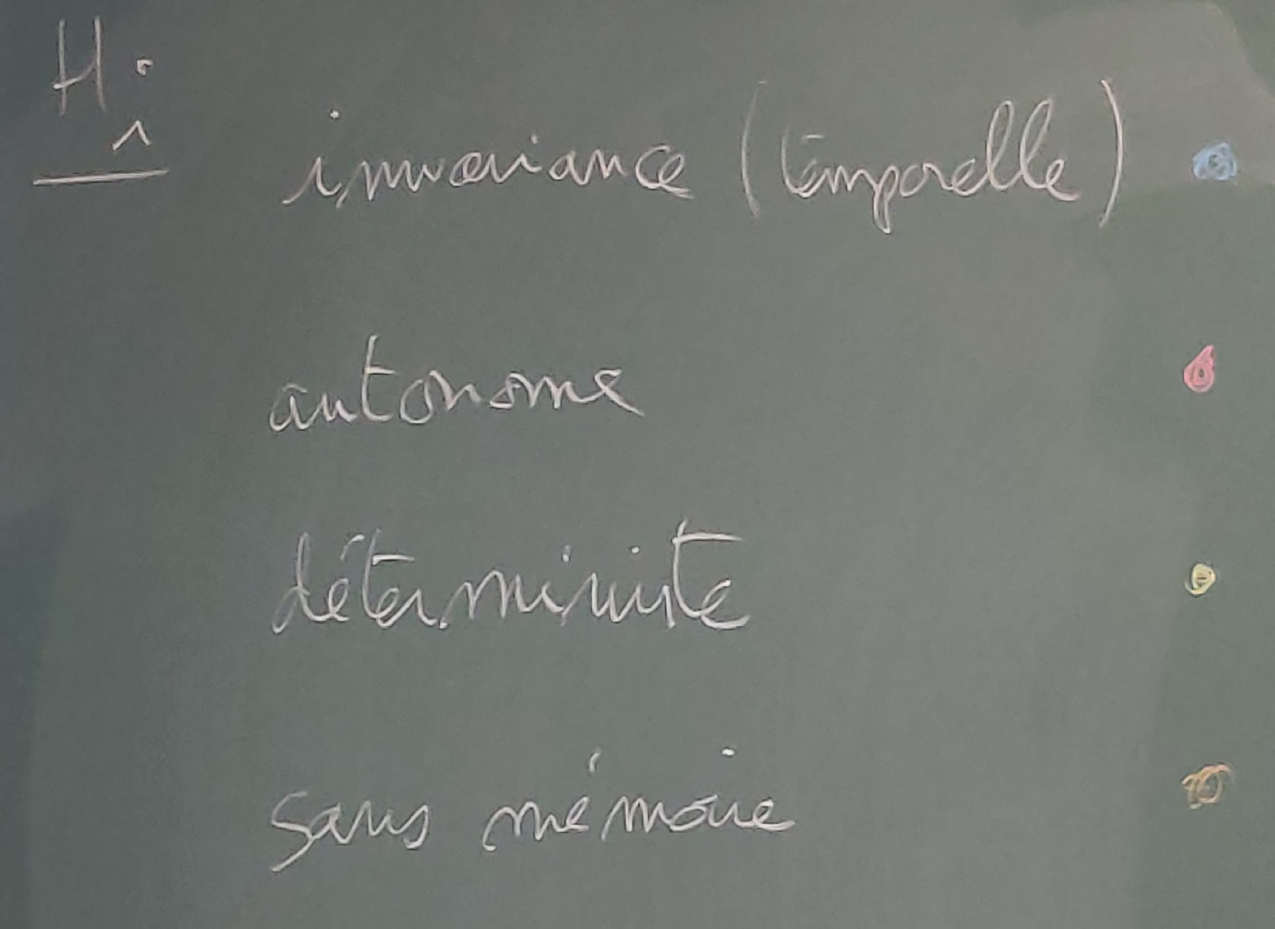 Hi
invariance (temporelle)
autonome
déterministe
sans mémoire